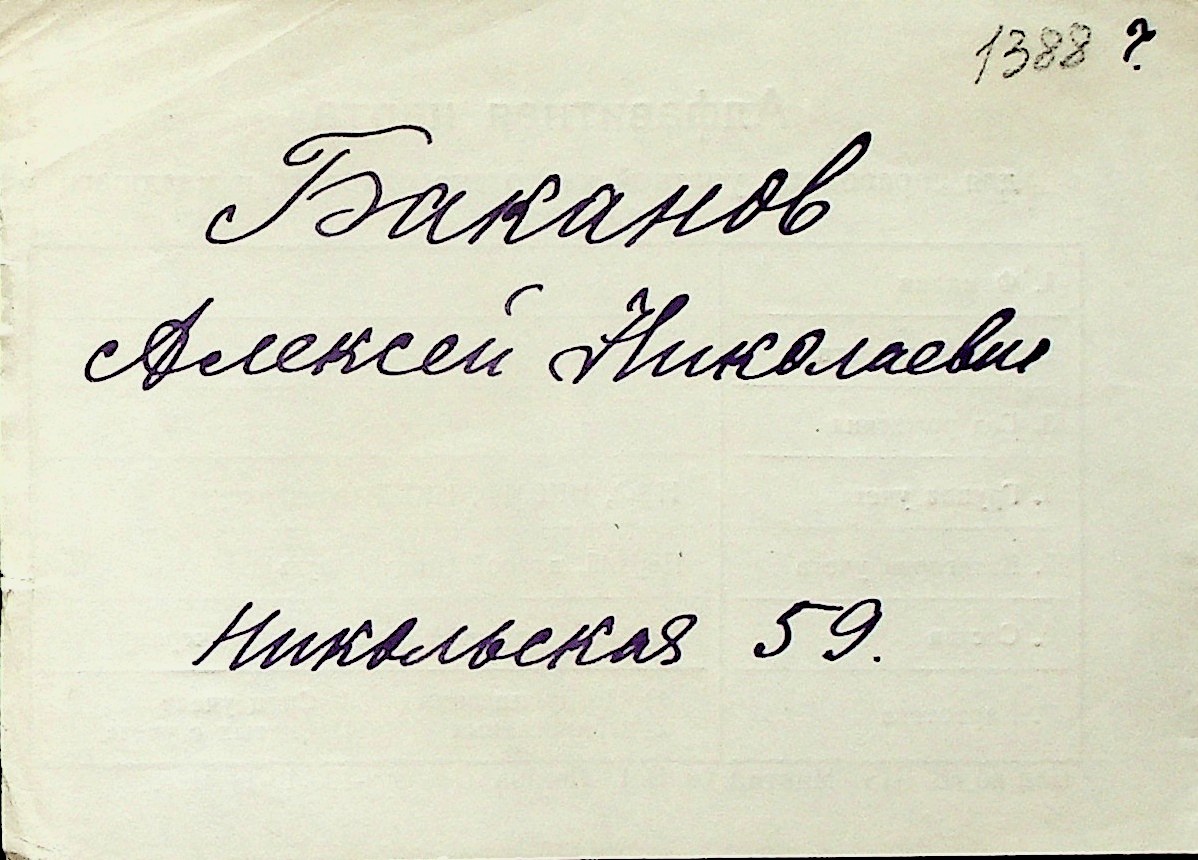 1388 ?
Баканов
Алексей Николаевич
Никольская 59.